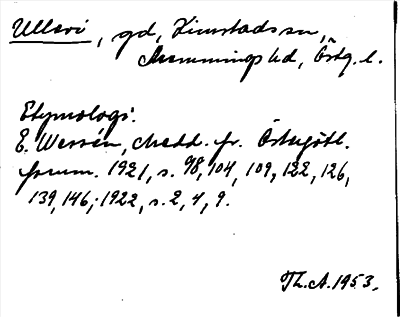 Ullevi, gd, Kimstads sn,
Memmings hd, Östg. l.
Etymologi:
E. Wessén, Medd. fr. Östergötl.
fornm. 1921, s. 98, 104, 109, 122, 126,
139, 146; 1922, s. 2, 4, 9.
Th. A. 1953.